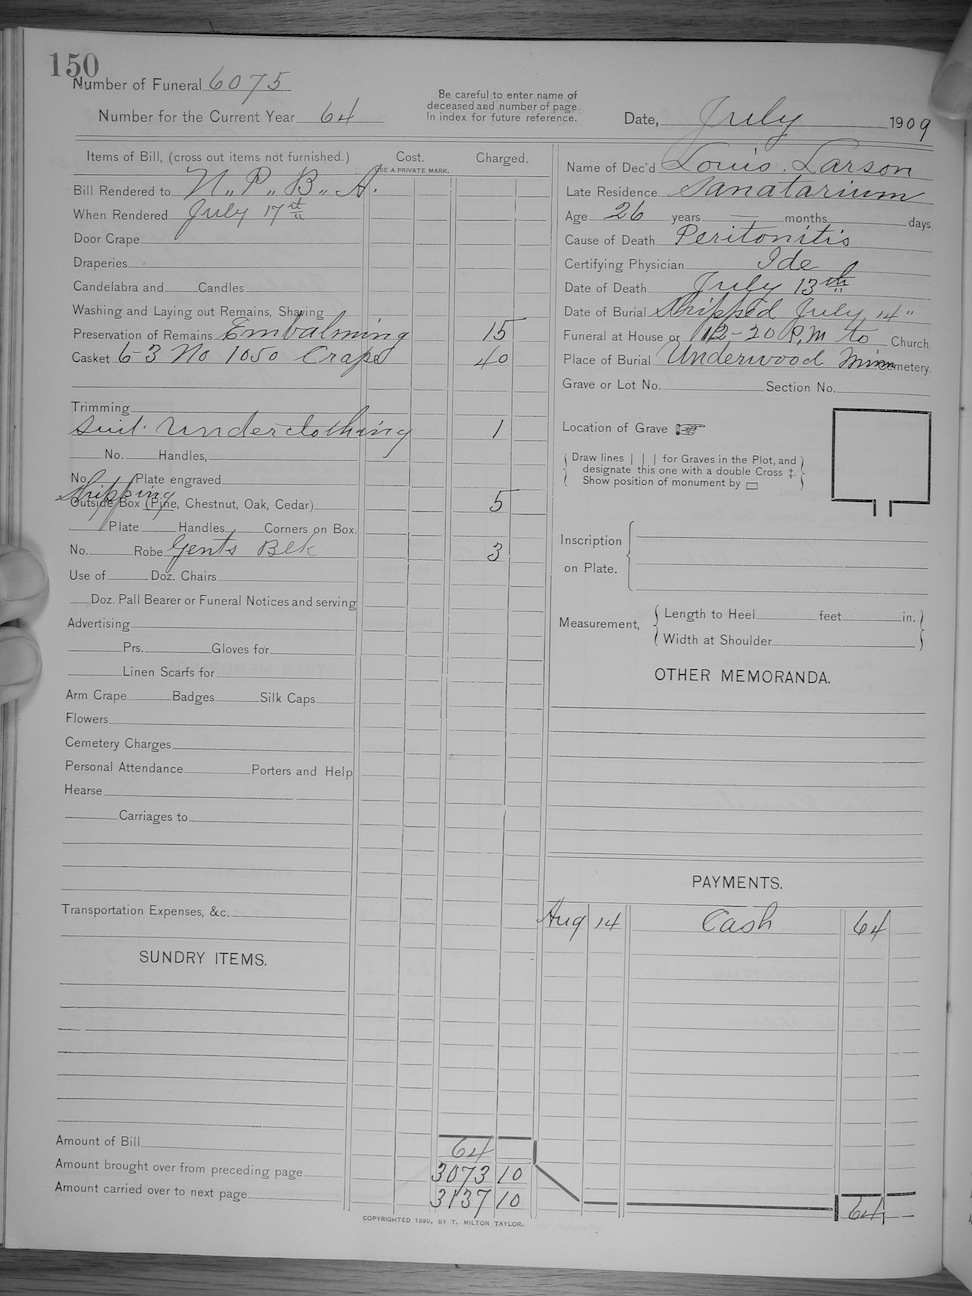 150
Number of Funeral 6075
Number for the Current Year 64
Be careful to enter name of
deceased and number of page
In index for future reference.
Date, July 1909
Items of Bill, (cross out items not furnished.) Cost. Charged.
USE A PRIVATE MARK.
Bill Rendered to N.. P.. B.. A.
When Rendered July 17th
Door Crape
Draperies
Candelabra and Candles
Washing and Laying out Remains, Shaving
Preservation of Remains Embalming 15
Casket 6-3 No 1050 Crape 40
Trimming
Suit. Underclothing 1
No. Handles,
No. Plate engraved
Shipping
Outside Box (Pine, Chestnut, Oak, Cedar) 5
Plate Handles Corners on Box.
No. Robe Gents Blk 3
Use of Doz. Chairs
Doz. Pall Bearer or Funeral Notices and serving
Advertising
Prs. Gloves for
Linen Scarfs for
Arm Crape Badges Silk Caps
Flowers
Cemetery Charges
Personal Attendance Porters and Help
Hearse
Carriages to
Transportation Expenses, &c.
SUNDRY ITEMS.
Amount of Bill 64
Amount brought over from preceding page 3073 10
Amount carried over to next page 3137 10
COPYRIGHTED 1890, BY T. MILTON TAYLOR.
Name of Dec'd Louis. Larson
Late Residence Sanatarium
Age 26 years — months days
Cause of Death Peritonitis
Certifying Physician Ide
Date of Death July 13th
Date of Burial Shipped July 14"
Funeral at House or 12-20 P.M to Church
Place of Burial Underwood Minn Cemetery
Grave or Lot No. Section No.
Location of Grave
Draw lines | | | for Graves in the Plot, and
designate this one with a double Cross ‡.
Show position of monument by ▭
Inscription
on Plate.
Measurement, Length to Heel feet in.
Width at Shoulder
OTHER MEMORANDA.
PAYMENTS.
Aug 14 Cash 64
64